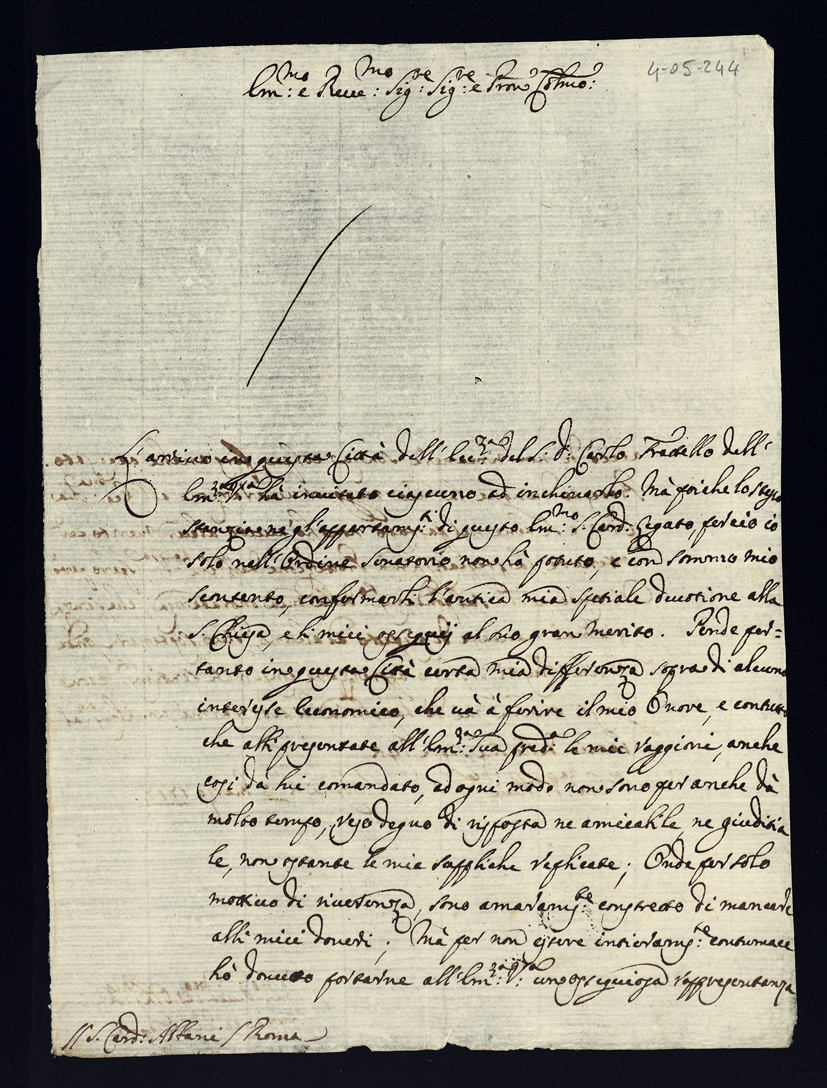 4-05-244
Em:mo e Reve:mo Sig:re Sig:re e Pron Colmo:
L'arrivo in questa Città dell'Ecc:za del S: D: Carlo Fratello dell'
Em:za V:ra hà invitato ciascuno ad inchinarlo. Mà poiche lo stesso
stanziane gl'appartam:ti di questo Em:mo S: Card: Legato, perciò io
solo nell'Ordine Senatorio non hà potuto, e con sommo mio
scontento, confermarli l'antica mia spetiale divotione alla
S: Chiesa, e li miei ossequij al suo gran merito. Pende per=
tanto in questa Città certa mia differenza sopra di alcuno
interesse Economico, che và à ferire il mio Onore, e contutto
che alli presentate all'Em:za Sua pred:a le mie raggioni, anche
cosi dà lui comandato, ad ogni modo non sono per anche dà
molto tempo, reso degno di risposta ne amicabile, ne giuditia
le, non ostante le mia suppliche replicate; Onde per solo
mottivo di riverenza, sono amaram:te costretto di mancare
alli miei doveri; Mà per non essere intieram:te contumace
hò dovuto portarne all'Em:za V:ra una ossequiosa rappresentanza
S: Card: Albani / Roma